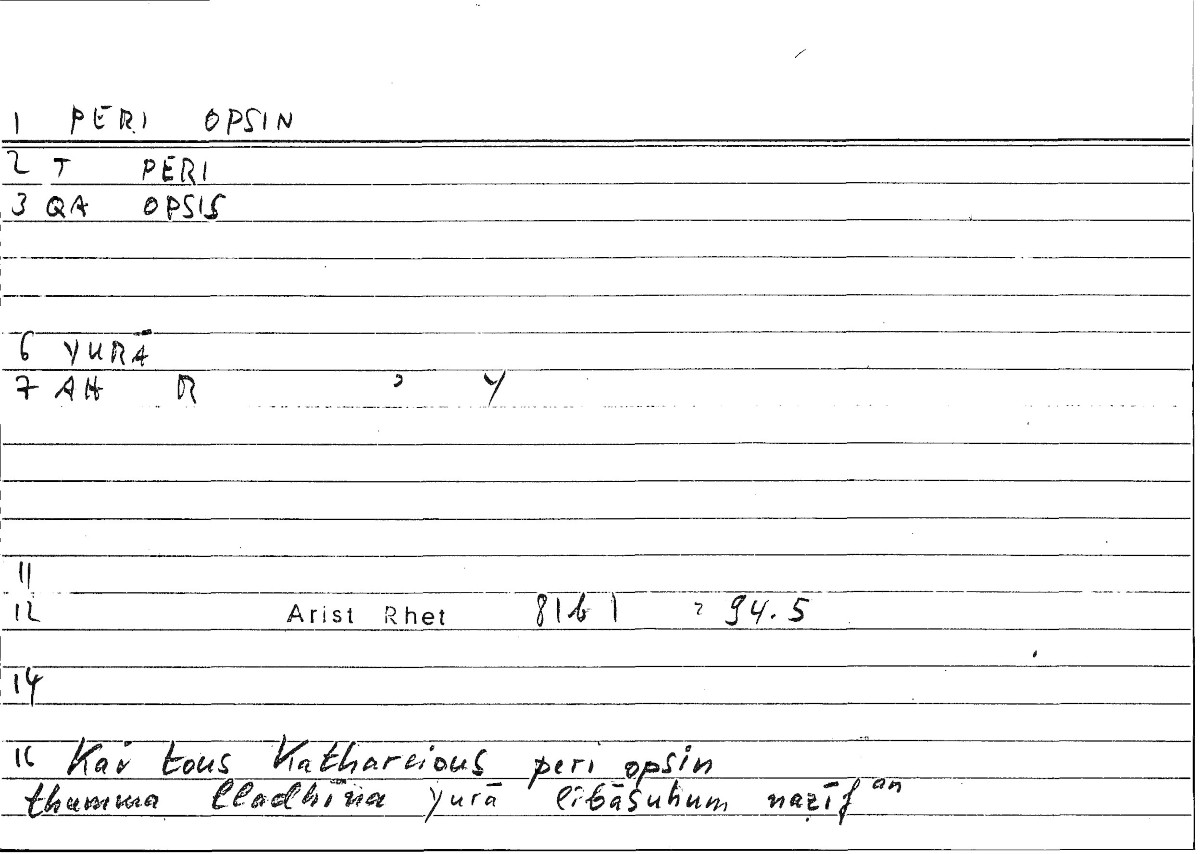 1 PERI OPSIN
2 T PERI
3 QA OPSIS
6 YURĀ
7 AH R ʾ Y
11
12 Arist Rhet 81b 1 = 94.5
14
16 Kai tous Kathareious peri opsin
thumma lladhīna yurā libāsuhum naẓīf an